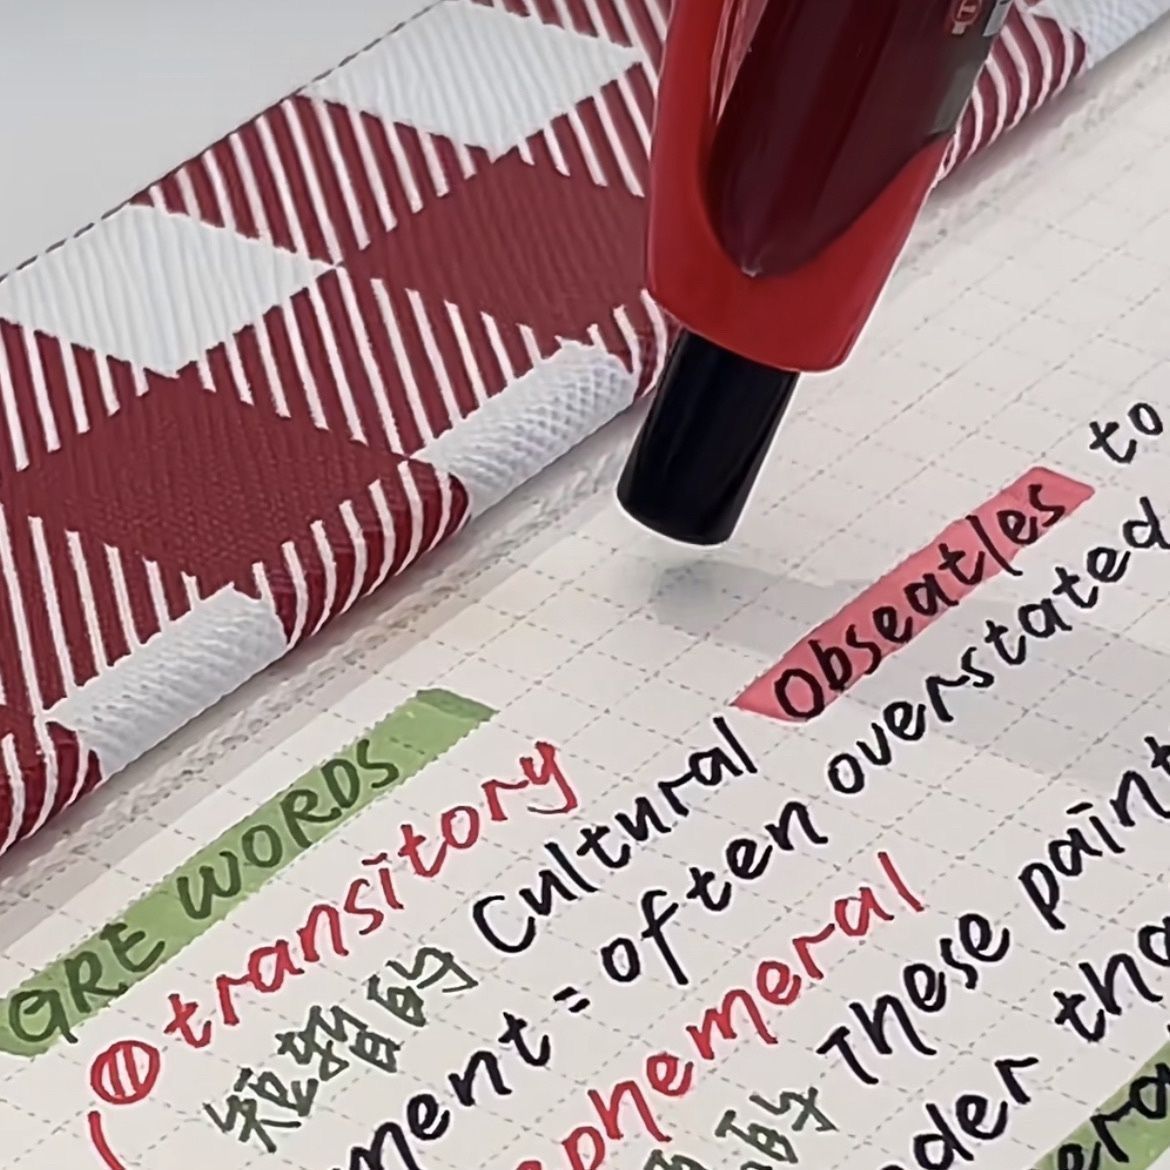 GRE WORDS
transitory
短暂的 Cultural Obseatles to
ment = often overstated
ephemeral These paint
的 der tha
era